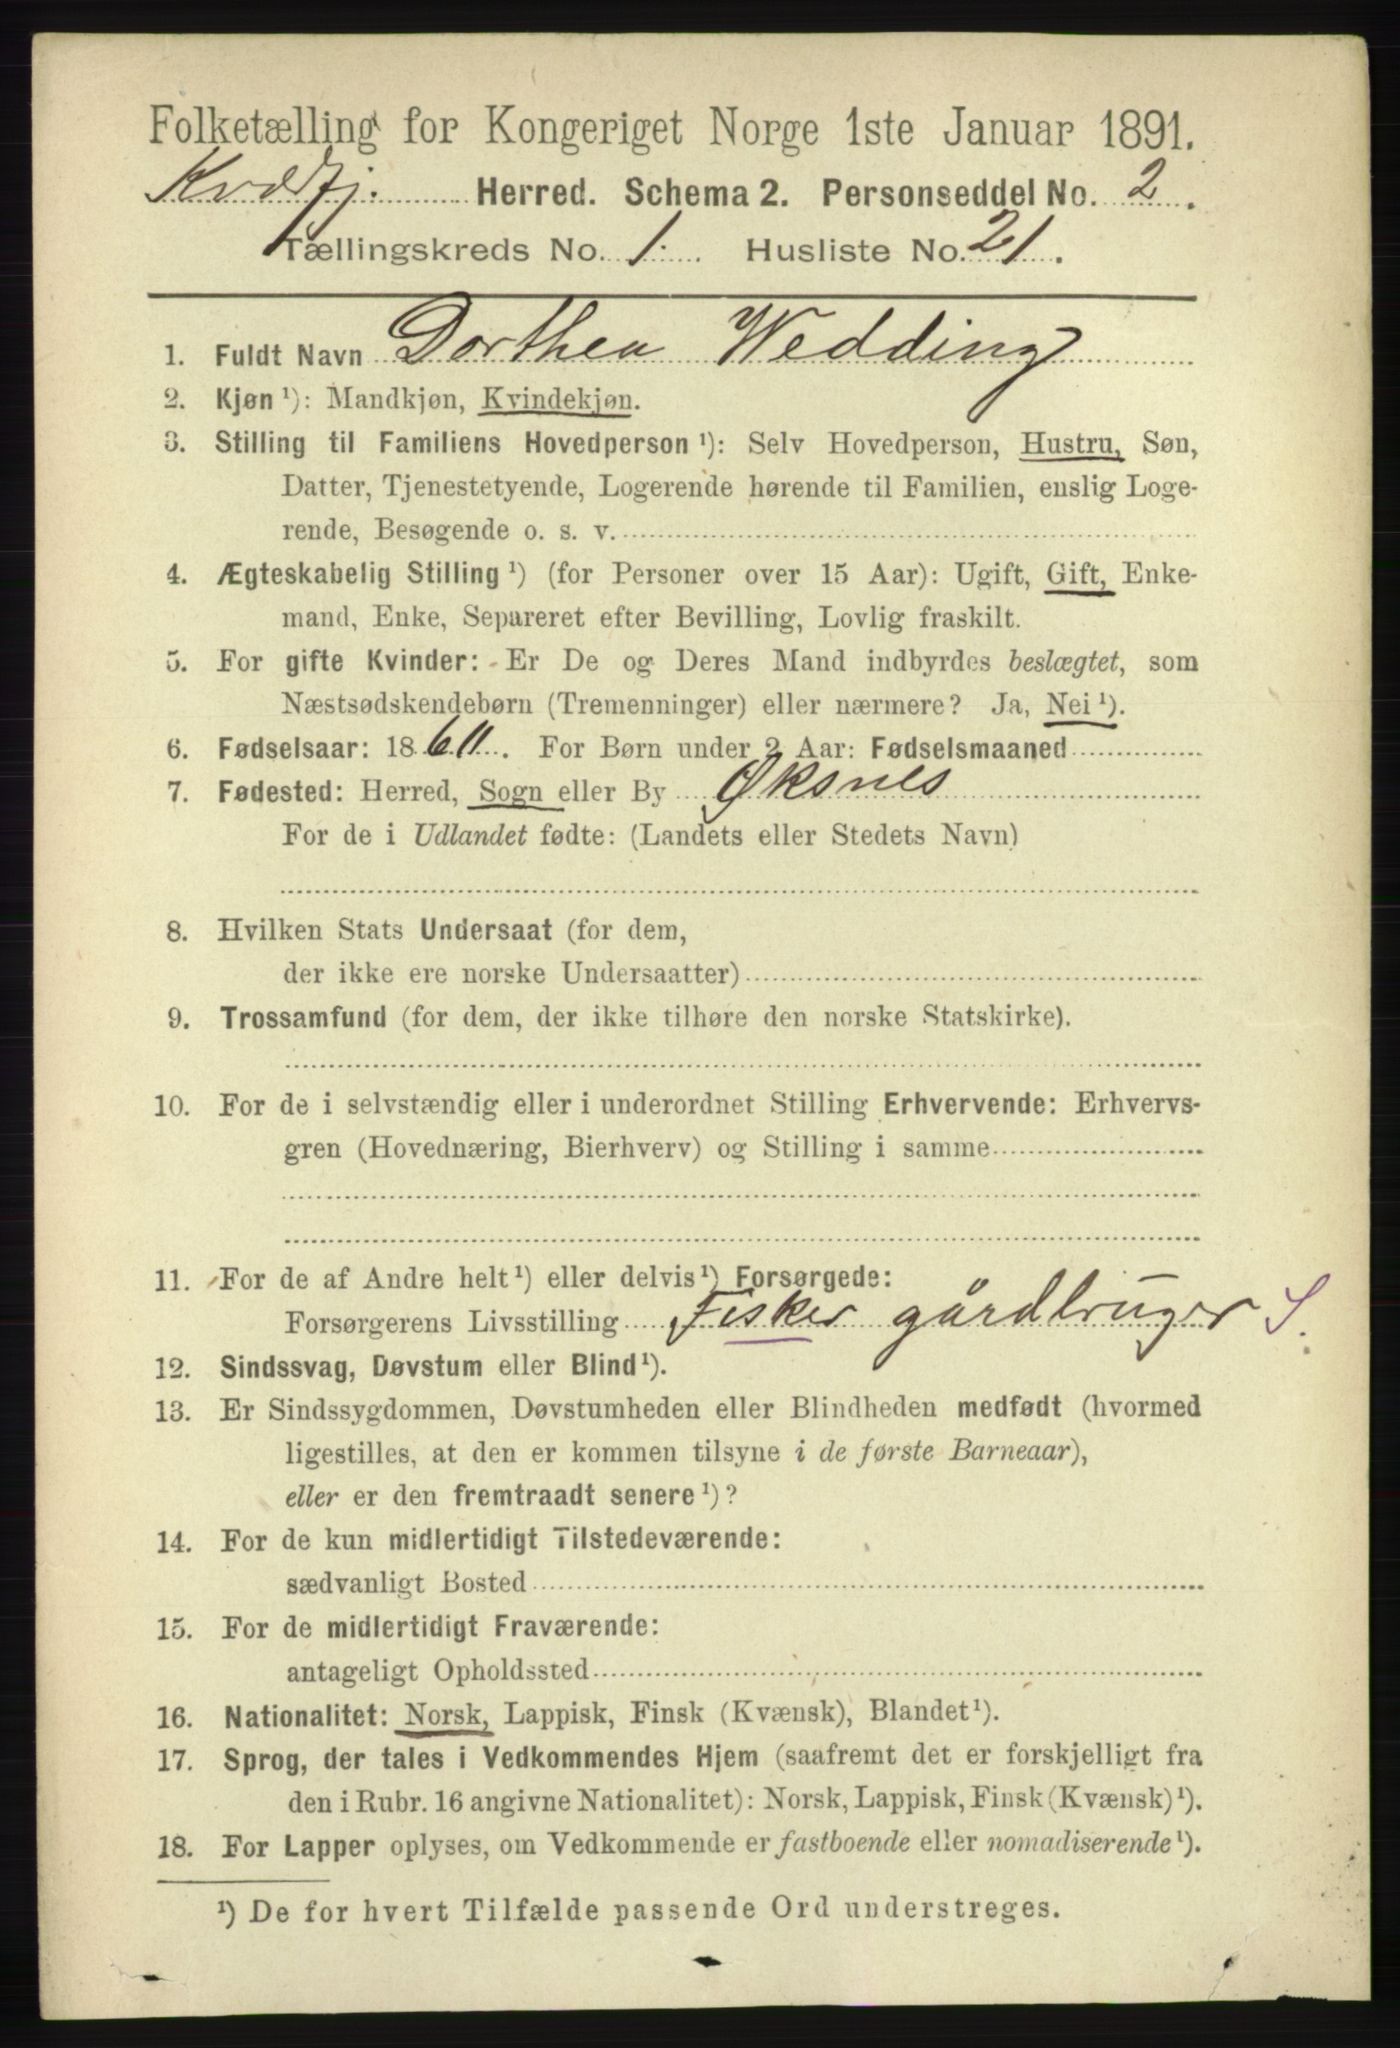 Folketælling for Kongeriget Norge 1ste Januar 1891.
Kvædfj. Herred. Schema 2. Personseddel No. 2.
Tællingskreds No. 1. Husliste No. 21.
1. Fuldt Navn Dorthea Wedding
2. Kjøn ¹): Mandkjøn, Kvindekjøn.
3. Stilling til Familiens Hovedperson ¹): Selv Hovedperson, Hustru, Søn,
Datter, Tjenestetyende, Logerende hørende til Familien, enslig Loge-
rende, Besøgende o. s. v.
4. Ægteskabelig Stilling ¹) (for Personer over 15 Aar): Ugift, Gift, Enke-
mand, Enke, Separeret efter Bevilling, Lovlig fraskilt.
5. For gifte Kvinder: Er De og Deres Mand indbyrdes beslægtet, som
Næstsødskendebørn (Tremenninger) eller nærmere? Ja, Nei ¹).
6. Fødselsaar: 18 . For Børn under 2 Aar: Fødselsmaaned
7. Fødested: Herred, Sogn eller By Øksnes
For de i Udlandet fødte: (Landets eller Stedets Navn)
8. Hvilken Stats Undersaat (for dem,
der ikke ere norske Undersaatter)
9. Trossamfund (for dem, der ikke tilhøre den norske Statskirke).
10. For de i selvstændig eller i underordnet Stilling Erhvervende: Erhvervs-
gren (Hovednæring, Bierhverv) og Stilling i samme
11. For de af Andre helt ¹) eller delvis ¹) Forsørgede:
Forsørgerens Livsstilling Fisker gårdbruger S.
12. Sindssvag, Døvstum eller Blind ¹).
13. Er Sindssygdommen, Døvstumheden eller Blindheden medfødt (hvormed
ligestilles, at den er kommen tilsyne i de første Barneaar),
eller er den fremtraadt senere ¹)?
14. For de kun midlertidigt Tilstedeværende:
sædvanligt Bosted
15. For de midlertidigt Fraværende:
antageligt Opholdssted
16. Nationalitet: Norsk, Lappisk, Finsk (Kvænsk), Blandet ¹).
17. Sprog, der tales i Vedkommendes Hjem (saafremt det er forskjelligt fra
den i Rubr. 16 angivne Nationalitet): Norsk, Lappisk, Finsk (Kvænsk) ¹).
18. For Lapper oplyses, om Vedkommende er fastboende eller nomadiserende ¹).
¹) De for hvert Tilfælde passende Ord understreges.